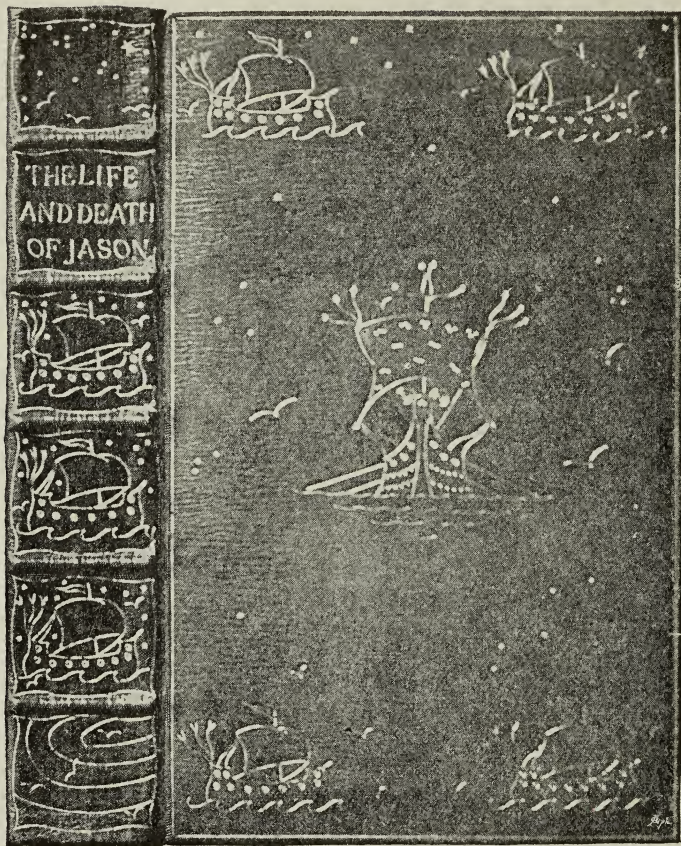 THE LIFE
AND DEATH
OF JASON